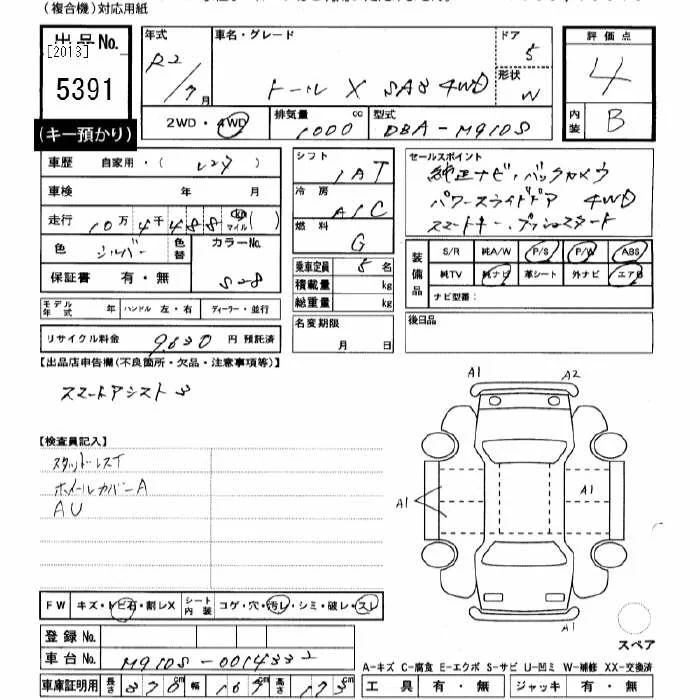 (複合機)対応用紙
出品No. 年式 車名・グレード ドア 評価点
[2013] R2 5
5391 /7月 トール X SAS 4WD 形状 4
W
2WD・4WD 排気量 1000 cc 型式 DBA-M910S 内装 B
(キー預かり)
車歴 自家用・( レンタ ) シフト IAT セールスポイント
車検 年 月 冷房 A/C 純正ナビ・バックカメラ
走行 10万4千488 km マイル ( ) パワースライドドア 4WD
燃料 G スマートキー・プッシュスタート
色 シルバー 色替 カラーNo. S28
保証書 有・無 乗車定員 5名 装備品 S/R 純A/W P/S P/W ABS
積載量 kg 純TV 純ナビ 革シート 外ナビ エアB
総重量 kg ナビ型番:
モデル年式 年 ハンドル 左・右 ディーラー・並行
名変期限 月 日 後日品
リサイクル料金 9,630 円 預託済
【出品店申告欄(不良箇所・欠品・注意事項等)】
スマートアシスト3
A1 A2
【検査員記入】
スタッドレスT
ホイールカバーA
AU
A1 A1
FW キズ・トビ石・割レX シート内装 コゲ・穴・汚レ・シミ・破レ・スレ
A1
登録No.
スペア
車台No. M910S-0014332
A-キズ C-腐食 E-エクボ S-サビ U-凹ミ W-補修 XX-交換済
車庫証明用 長さ 370cm 幅 167cm 高さ 173cm 工具 有・無 ジャッキ 有・無